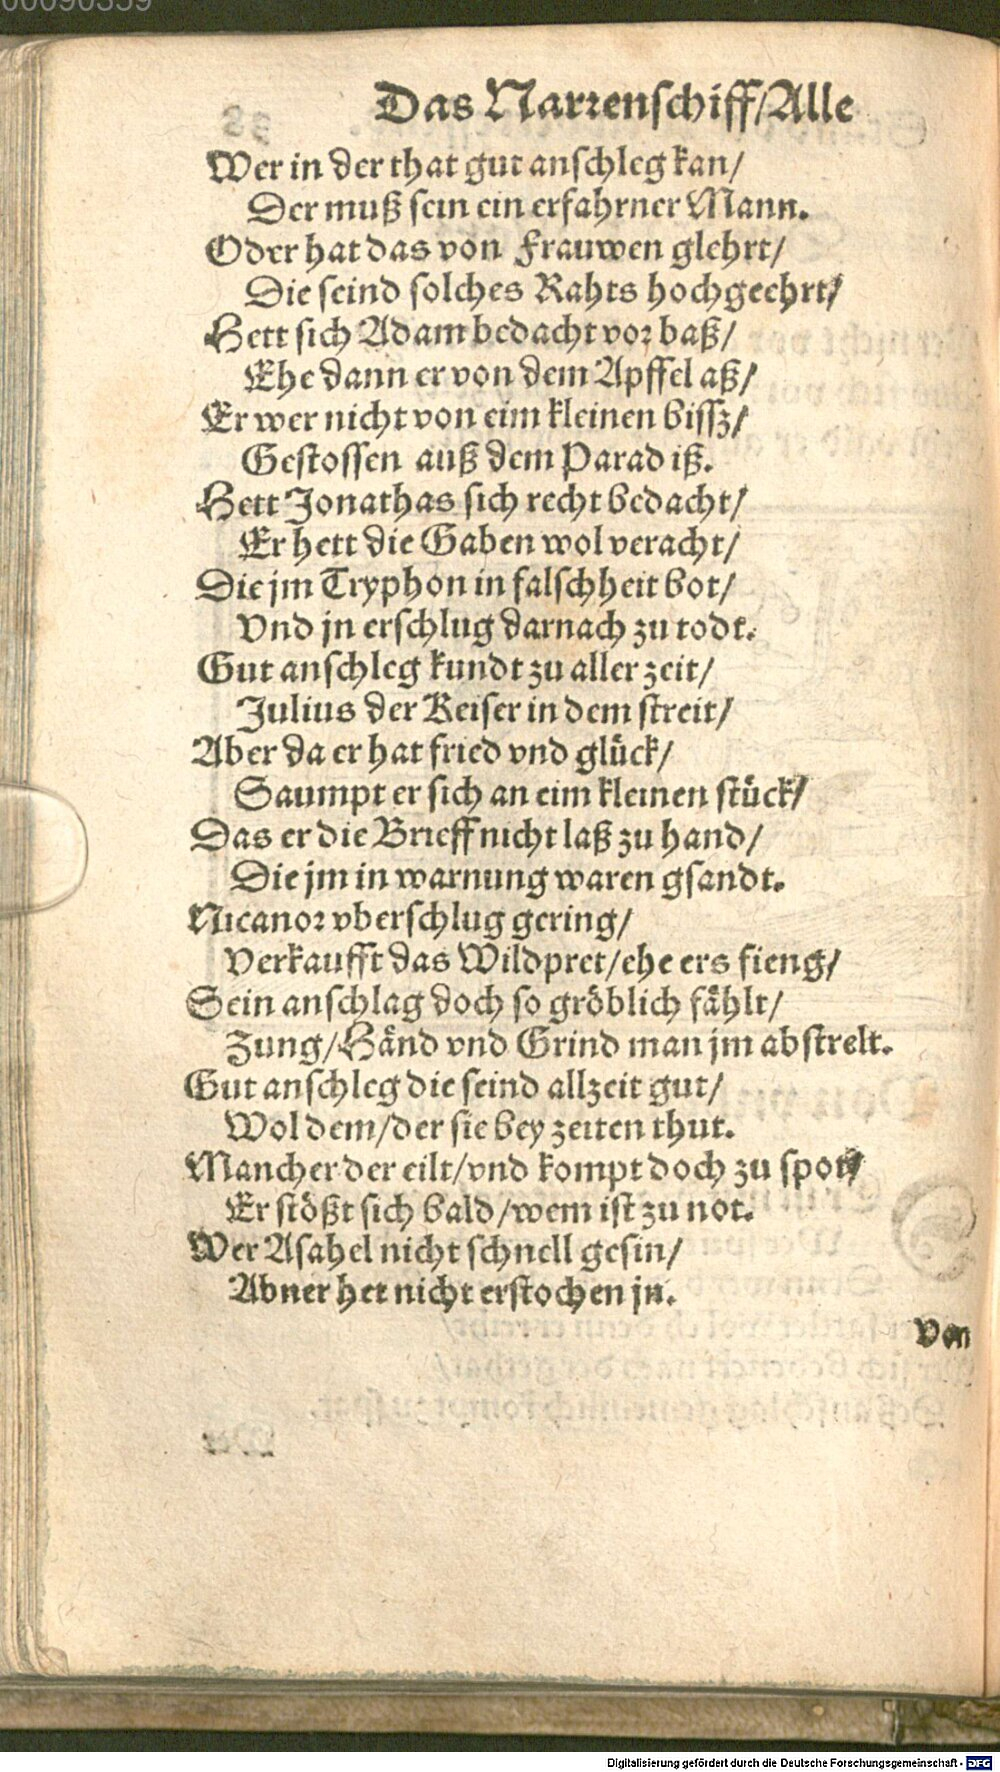 00090359
Das Narrenschiff/Alle
Wer in der that gut anschleg kan/
Der muß sein ein erfahrner Mann.
Oder hat das von Frauwen glehrt/
Die seind solches Rahts hochgeehrt/
Hett sich Adam bedacht vor baß/
Ehe dann er von dem Apffel aß/
Er wer nicht von eim kleinen bissz/
Gestossen auß dem Parad iß.
Hett Jonathas sich recht bedacht/
Er hett die Gaben wol veracht/
Die jm Tryphon in falschheit bot/
Vnd jn erschlug darnach zu todt.
Gut anschleg kundt zu aller zeit/
Julius der Keiser in dem streit/
Aber da er hat fried vnd glück/
Saumpt er sich an eim kleinen stück/
Das er die Brieff nicht laß zu hand/
Die jm in warnung waren gsandt.
Nicanor vberschlug gering/
Verkaufft das Wildpret/ehe ers fieng/
Sein anschlag doch so gröblich fählt/
Zung/Händ vnd Grind man jm abstrelt.
Gut anschleg die seind allzeit gut/
Wol dem/der sie bey zeiten thut.
Mancher der eilt/vnd kompt doch zu spot/
Er stößt sich bald/wem ist zu not.
Wer Asahel nicht schnell gesin/
Abner het nicht erstochen jn.
Von
Digitalisierung gefördert durch die Deutsche Forschungsgemeinschaft - DFG